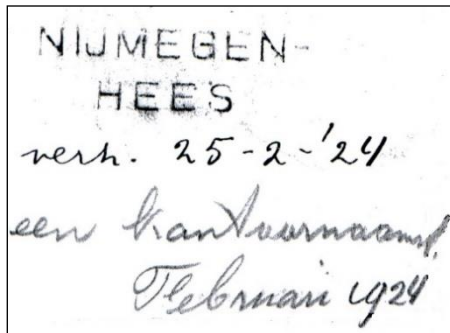 NIJMEGEN-
HEES
verh. 25-2-'24
een kantoornaamst.
Februari 1924